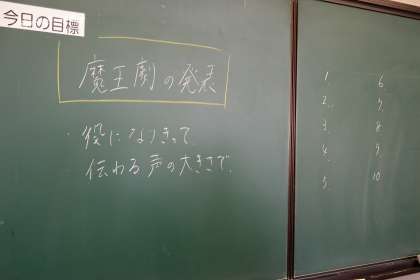 今日の目標
魔王劇の発表
・役になりきって
伝わる声の大きさで、
1. 6
2. 7.
3. 8
4. 9.
5. 10